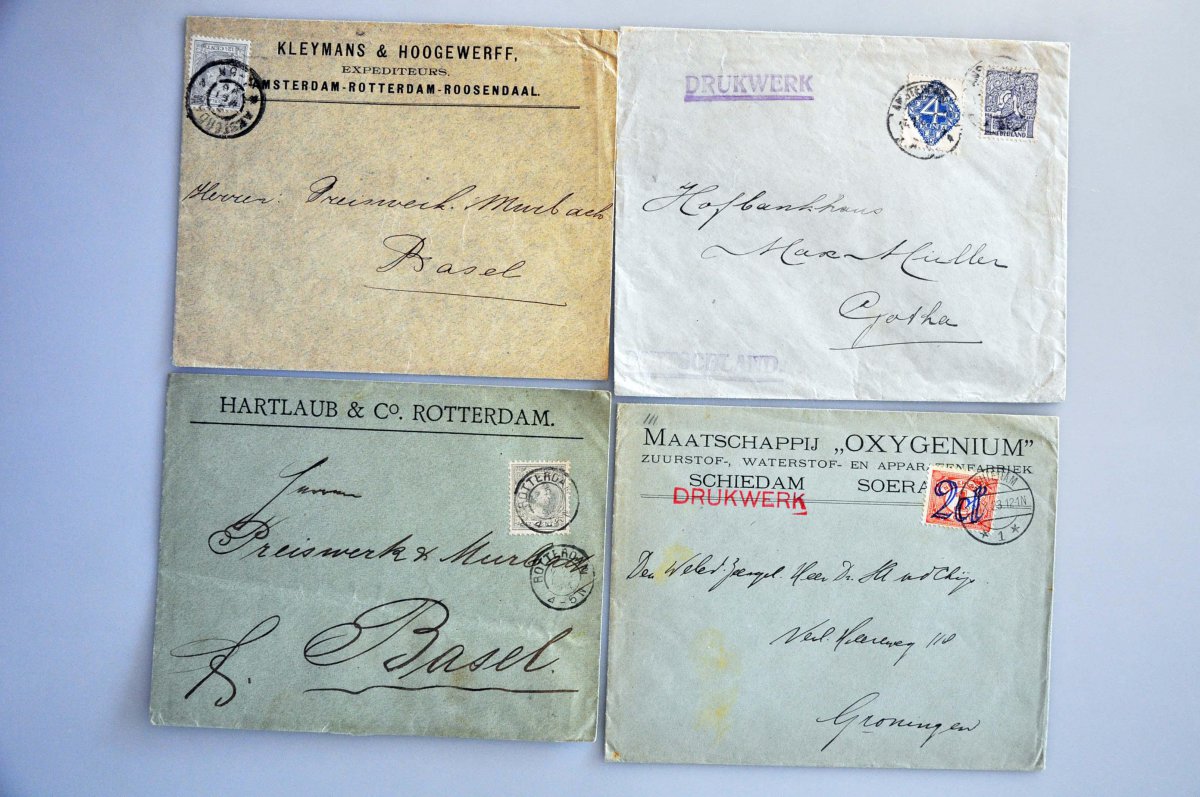 KLEYMANS & HOOGEWERFF,
EXPEDITEURS.
AMSTERDAM-ROTTERDAM-ROOSENDAAL.
Herren Preiswerk. Murbach
Basel
DRUKWERK
4
CENT
NEDERLAND
Hofbankhaus
Max Müller
Gotha
DEUTSCHLAND
HARTLAUB & Co. ROTTERDAM.
ROTTERDAM
Herren
Preiswerk & Murbach
ROTTERDAM
4-5N
Basel.
MAATSCHAPPIJ „OXYGENIUM”
ZUURSTOF-, WATERSTOF- EN APPARATENFABRIEK
SCHIEDAM SOERA
DRUKWERK
2ct
12-1N
1
Den Weled. Heer Dr.
Verl. Heereweg 118
Groningen